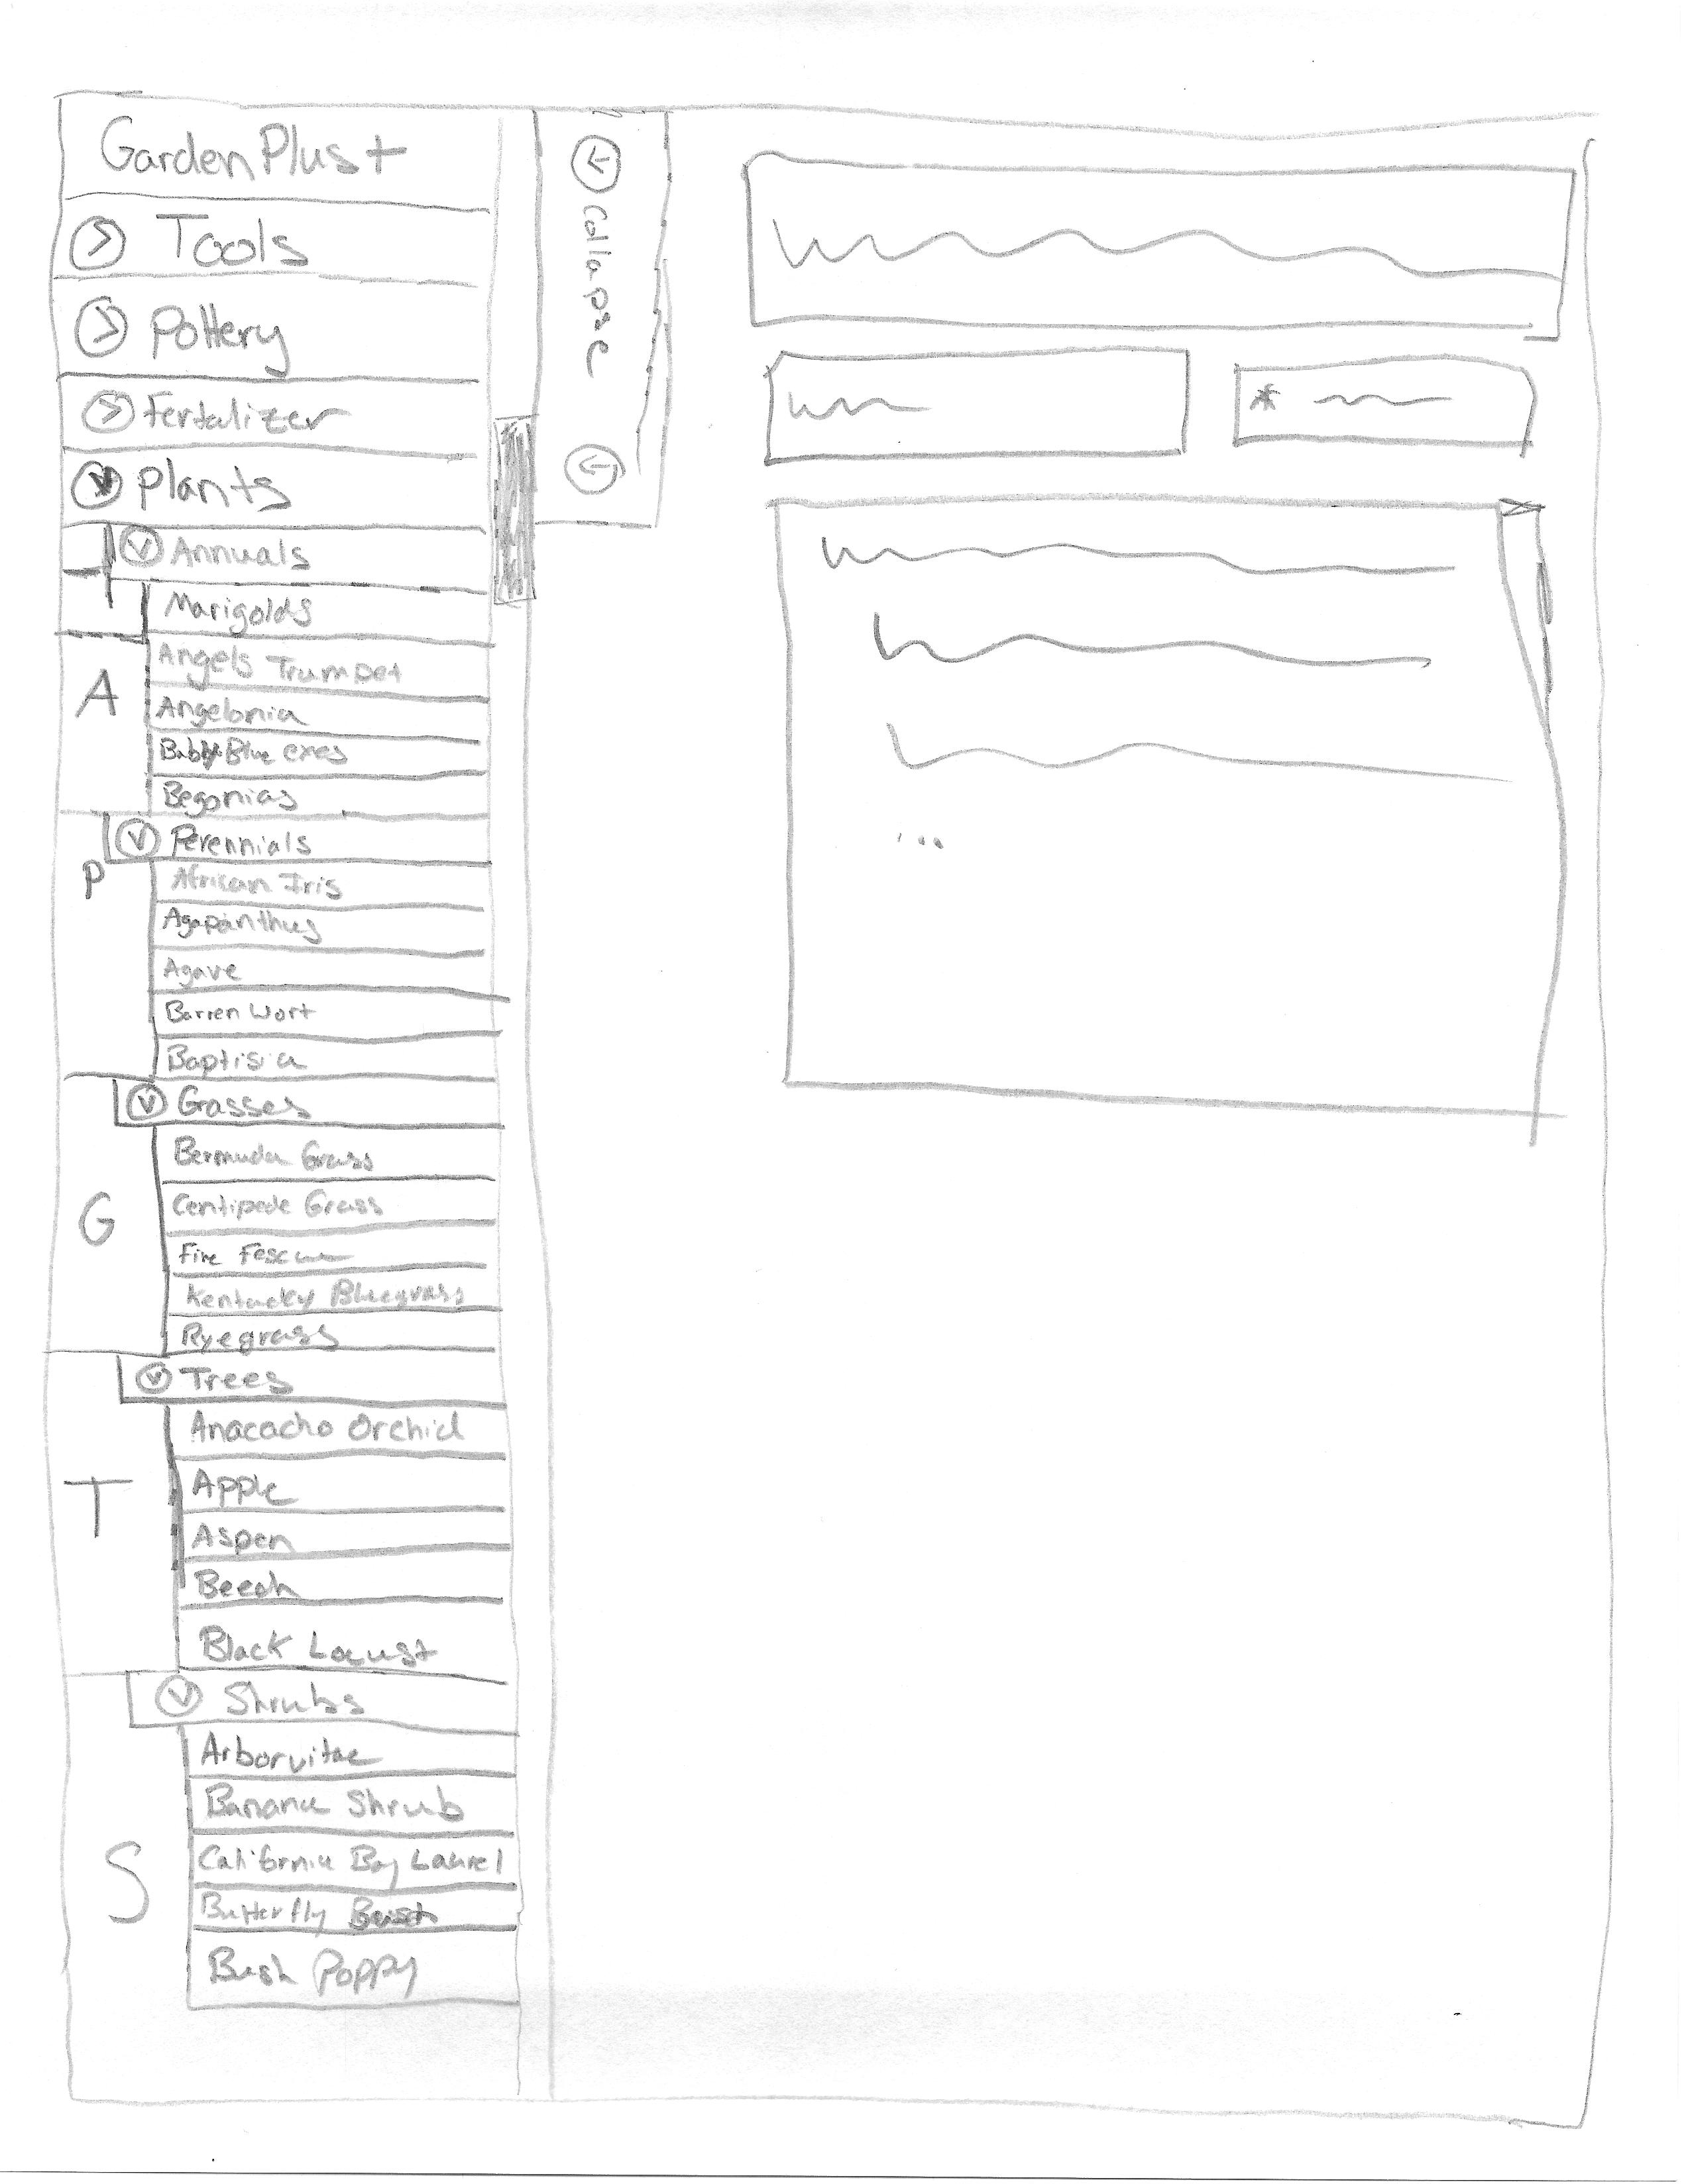 GardenPlus+
Tools
Pottery
Fertalizer
Plants
Annuals
Marigolds
Angels Trumpet
A
Angelonia
Baby Blue eyes
Begonias
Perennials
P
African Iris
Agapanthus
Agave
Barren Wort
Baptisia
Gasses
Bermuda Grass
Centipede Grass
G
Fine Fescue
Kentucky Bluegrass
Ryegrass
Trees
Anacacho Orchid
T
Apple
Aspen
Beech
Black Locust
Shrubs
Arborvitae
Banana Shrub
S
California Bay Laurel
Butterfly
Bush Poppy
Collapse
...